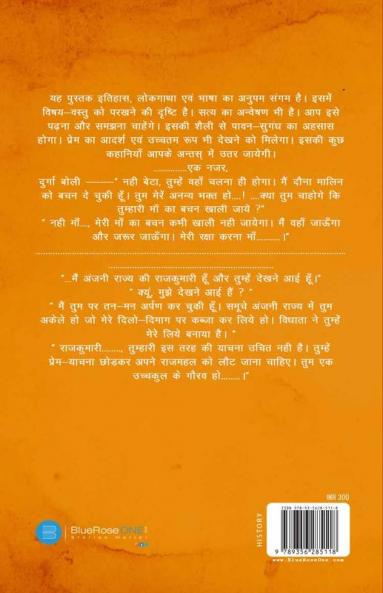 यह पुस्तक इतिहास, लोकगाथा एवं भाषा का अनुपम संगम है। इसमें
विषय–वस्तु को परखने की दृष्टि है। सत्य का अन्वेषण भी है। आप इसे
पढ़ना और समझना चाहेंगे। इसकी शैली से पावन–सुगंध का अहसास
होगा। प्रेम का आदर्श एवं उच्चतम रूप भी देखने को मिलेगा। इसकी कुछ
कहानियाँ आपके अन्तस् में उतर जायेगी।
..............एक नजर,
दुर्गा बोली ———“ नही बेटा, तुम्हें वहाँ चलना ही होगा। मैं दौना मालिन
को बचन दे चुकी हूँ। तुम मेरें अनन्य भक्त हो....! ....क्या तुम चाहोगे कि
तुम्हारी माँ का बचन खाली जाये ?”
“ नही माँ..., मेरी माँ का बचन कभी खाली नही जायेगा। मैं वहाँ जाऊँगा
और जरूर जाऊँगा। मेरी रक्षा करना माँ..........।”
“...मैं अंजनी राज्य की राजकुमारी हूँ और तुम्हें देखने आई हूँ।”
“ क्यूं, मुझे देखने आई हैं ? ”
“ मैं तुम पर तन–मन अर्पण कर चुकी हूँ। समूचे अंजनी राज्य में तुम
अकेले हो जो मेरे दिलो–दिमाग पर कब्जा कर लिये हो। विधाता ने तुम्हें
मेरे लिये बनाया है। ”
“ राजकुमारी........, तुम्हारी इस तरह की याचना उचित नही है। तुम्हें
प्रेम–याचना छोडकर अपने राजमहल को लौट जाना चाहिए। तुम एक
उच्चकुल के गौरव हो........।”
INR 300
HISTORY
9 789356 285118
www.BlueRoseOne.com
BlueRose ONE
Stories Matter